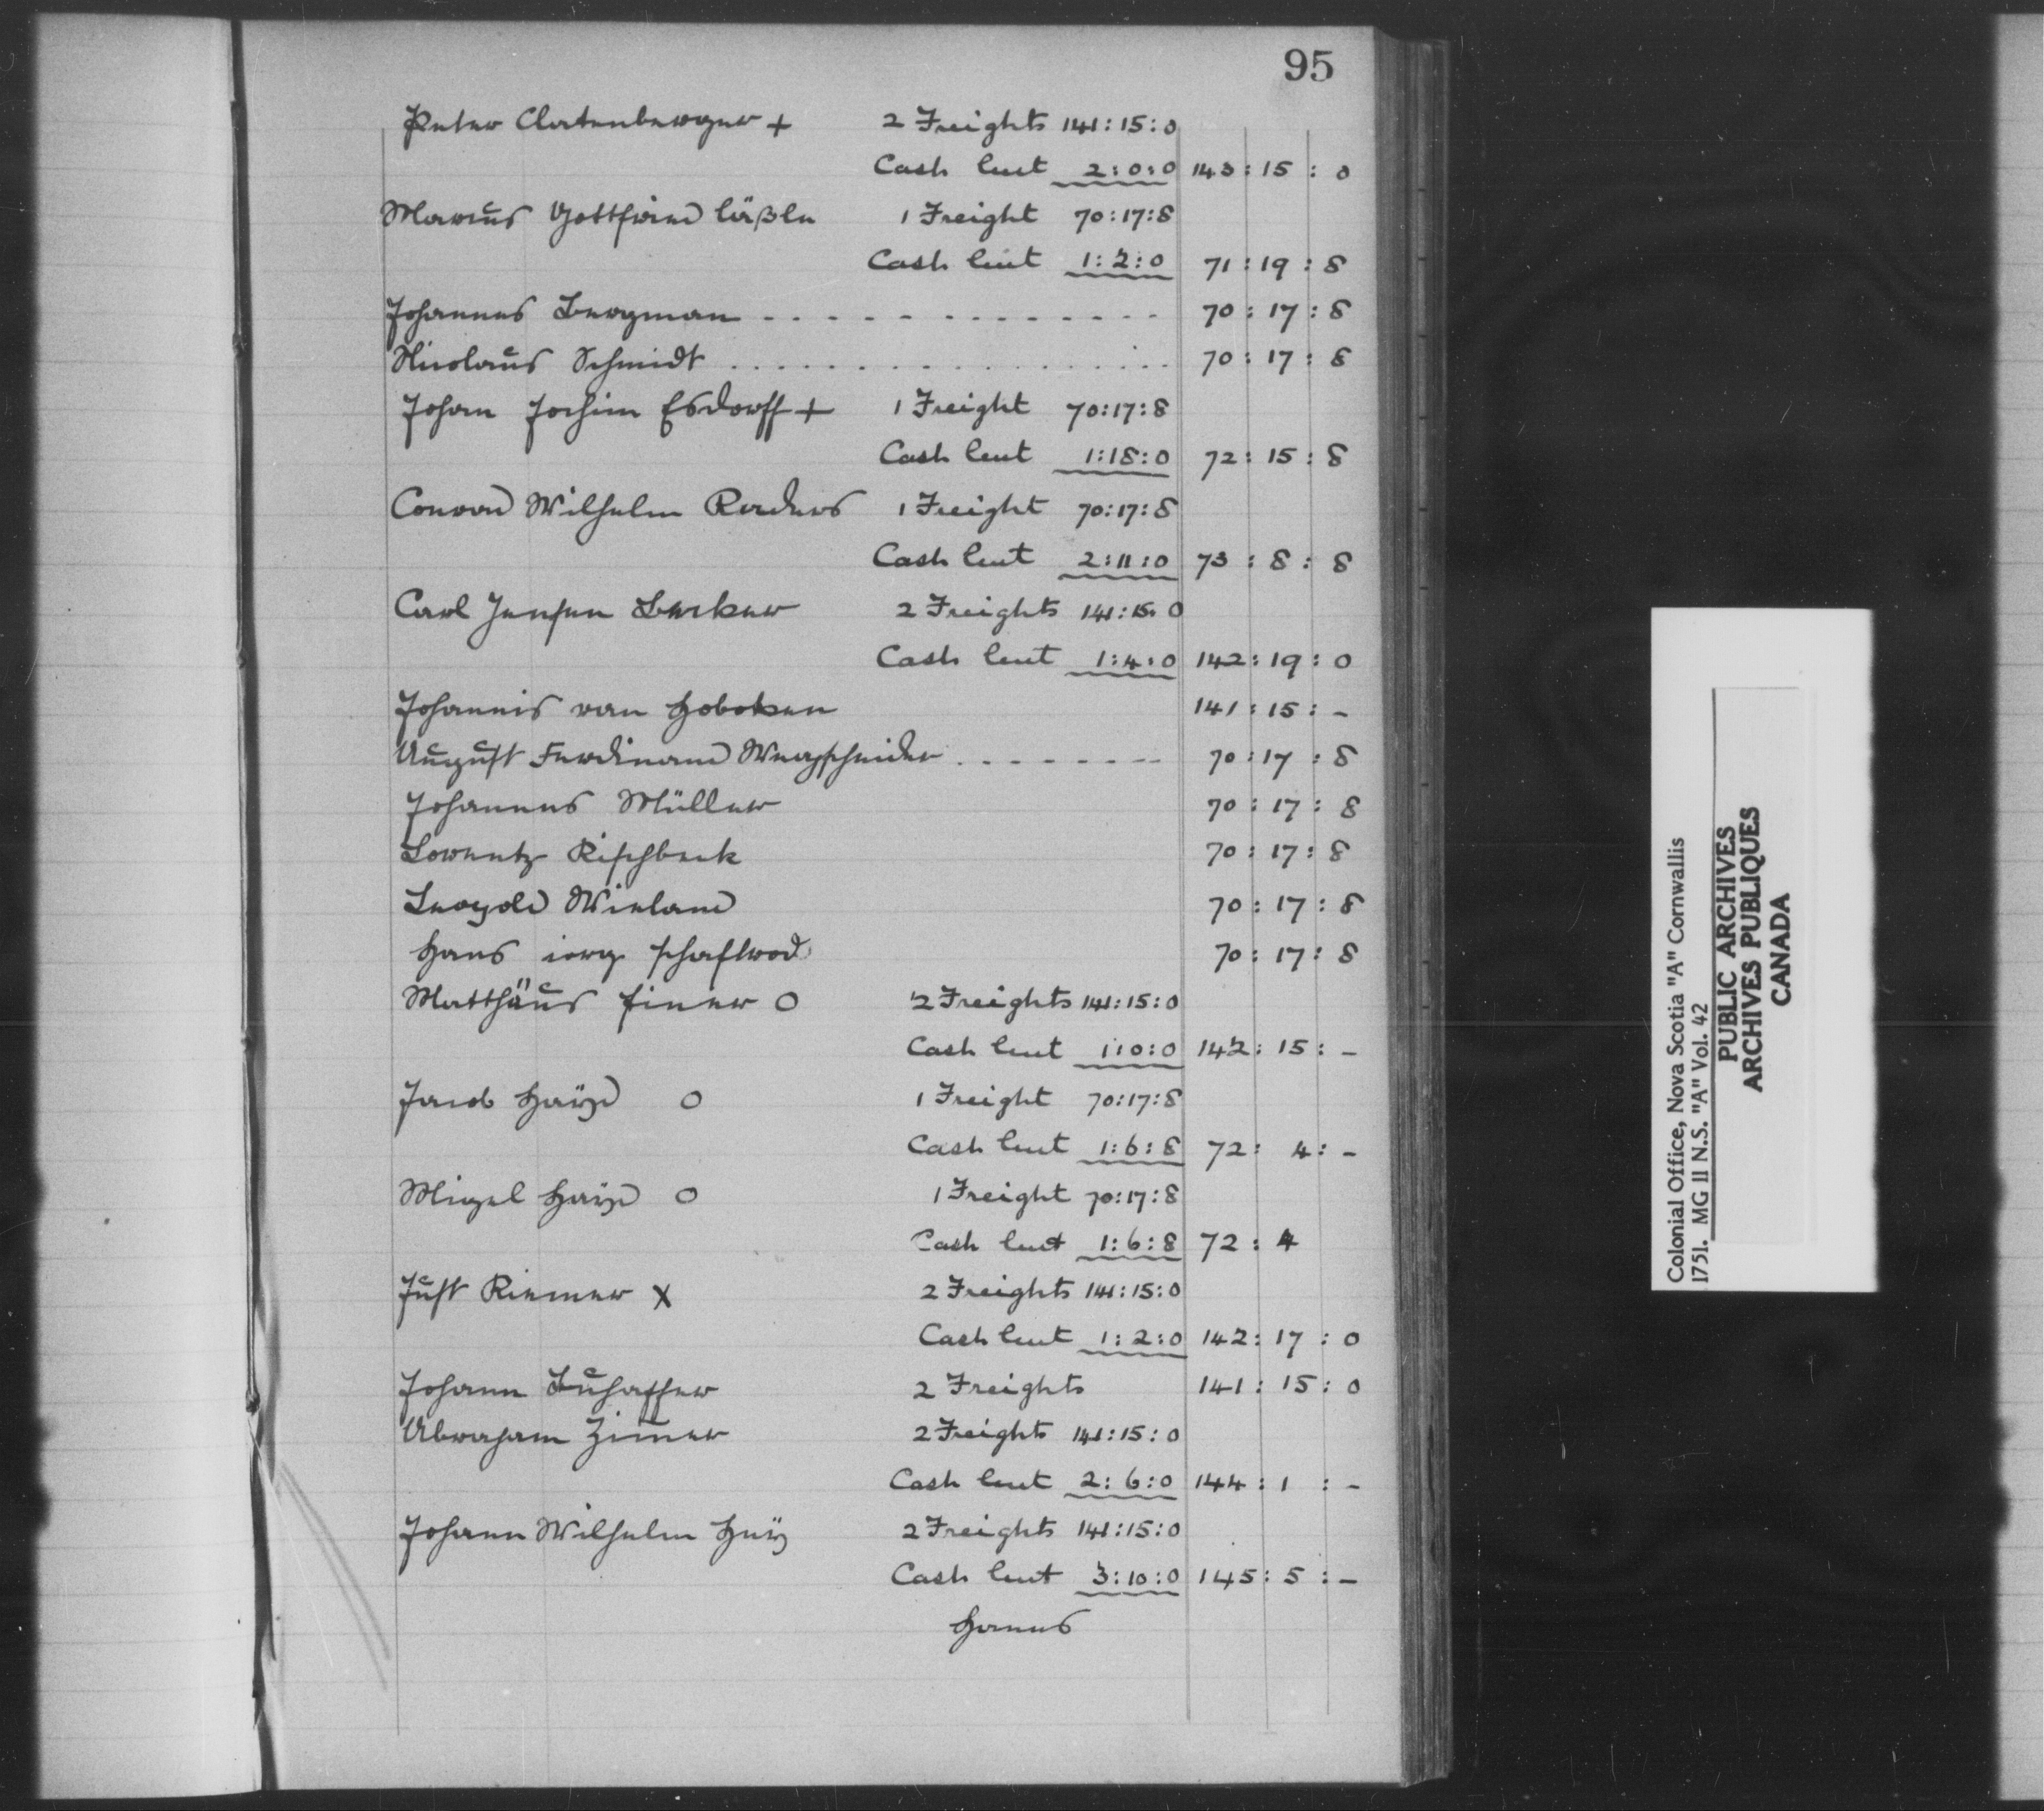 95
Peter Clatenberger + 2 Freights 141:15:0
Cash lent 2:0:0 143:15:0
Marcus Gottfried läßle 1 Freight 70:17:8
Cash lent 1:2:0 71:19:8
Johannes Bergman - - - - - - - - - - - - - 70:17:8
Nicolaus Schmidt . . . . . . . . . . . . . . . . . 70:17:8
Johan Jochim Esdorff + 1 Freight 70:17:8
Cash lent 1:18:0 72:15:8
Conrad Wilhelm Raders 1 Freight 70:17:8
Cash lent 2:11:0 73:8:8
Carl Jensen Becker 2 Freights 141:15:0
Cash lent 1:4:0 142:19:0
Johannis van Hoboken 141:15:-
August Ferdinand Wegscheider - - - - - - - - 70:17:8
Johannes Müller 70:17:8
Lorentz Rischbeck 70:17:8
Leopold Wieland 70:17:8
Hans iorg schaffrod 70:17:8
Matthäus finer O 2 Freights 141:15:0
Cash lent 1:0:0 142:15:-
Jacob O 1 Freight 70:17:8
Cash lent 1:6:8 72:4:-
Migel O 1 Freight 70:17:8
Cash lent 1:6:8 72:4
Just Riemer X 2 Freights 141:15:0
Cash lent 1:2:0 142:17:0
Johann 2 Freights 141:15:0
Abraham Zimer 2 Freights 141:15:0
Cash lent 2:6:0 144:1:-
Johann Wilhelm 2 Freights 141:15:0
Cash lent 3:10:0 145:5:-
Hannes
Colonial Office, Nova Scotia "A" Cornwallis
1751. MG II N.S. "A" Vol. 42
PUBLIC ARCHIVES
ARCHIVES PUBLIQUES
CANADA